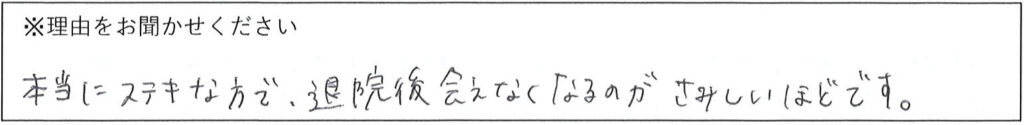 ※理由をお聞かせください
本当にステキな方で、退院後会えなくなるのがさみしいほどです。